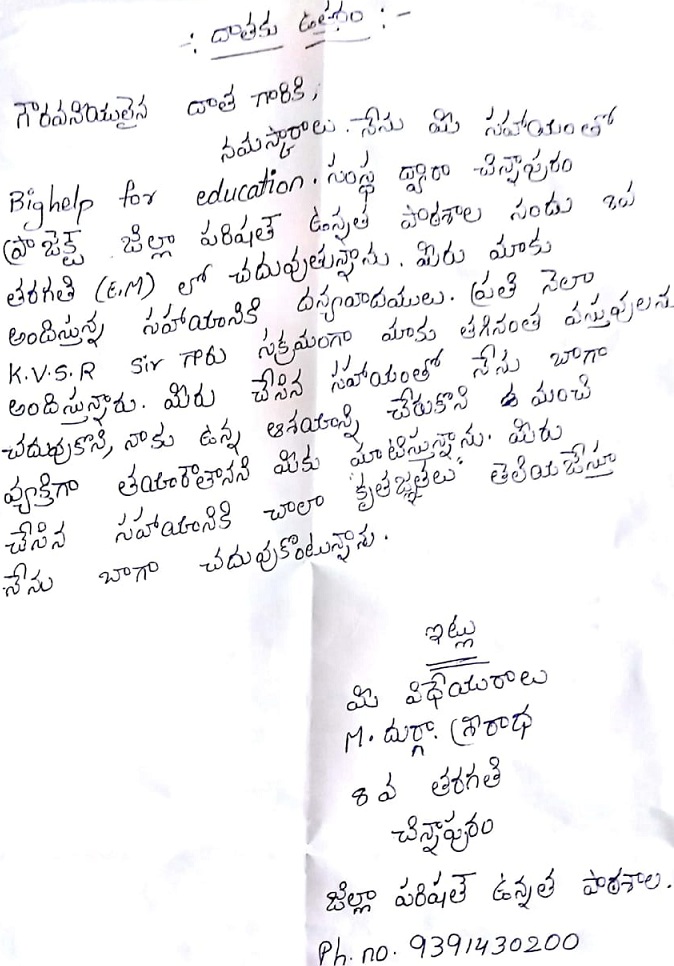 -: దాతకు ఉత్తరం :-
గౌరవనియులైన దాత గారికి,
నమస్కారాలు. నేను మి సహాయంతో
Bighelp for education. సంస్థ ద్వారా చిన్నాపురం
ప్రాజెక్ట్ జిల్లా పరిషత్ ఉన్నత పాఠశాల నందు 8వ
తరగతి (E.M) లో చదువుతున్నాను. మీరు మాకు
అందిస్తున్న సహాయానికి దన్యవాదములు. ప్రతి నెలా
K.V.S.R Sir గారు సక్రమంగా మాకు తగినంత వస్తువులను
అందిస్తున్నారు. మీరు చేసిన సహాయంతో నేను బాగా
చదువుకొని, నాకు ఉన్న ఆశయాన్ని చేరుకొని మంచి
వ్యక్తిగా తయారౌతానని మీకు మాటిస్తున్నాను. మీరు
చేసిన సహాయానికి చాలా కృతజ్ఞతలు తెలియజేస్తూ
నేను బాగా చదువుకొంటున్నాను.
ఇట్లు
మి విధేయురాలు
M. దుర్గా. శ్రీరాధ
8 వ తరగతి
చిన్నాపురం
జిల్లా పరిషత్ ఉన్నత పాఠశాల.
Ph. no. 9391430200